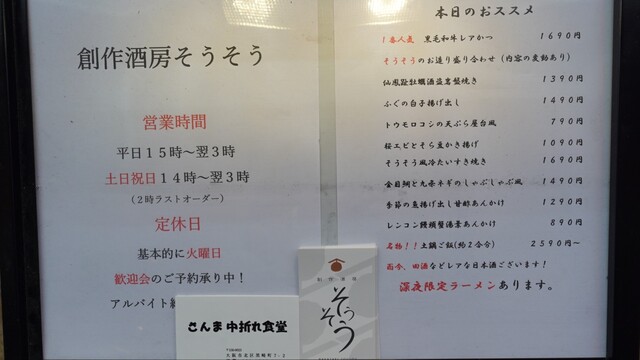 創作酒房そうそう
営業時間
平日１５時～翌３時
土日祝日１４時～翌３時
（２時ラストオーダー）
定休日
基本的に火曜日
歓迎会のご予約承り中！
アルバイト
本日のおススメ
１番人気 黒毛和牛レアかつ １６９０円
そうそうのお造り盛り合わせ（内容の変動あり）
牡蠣酒盗岩盤焼き １３９０円
ふぐの白子揚げ出し １４９０円
トウモロコシの天ぷら屋台風 ７９０円
桜エビとそら豆かき揚げ １０９０円
そうそう風冷たいすき焼き １６９０円
金目鯛と九条ネギのしゃぶしゃぶ風 １４９０円
季節の魚揚げ出し甘酢あんかけ １２９０円
レンコン饅頭蟹湯葉あんかけ ８９０円
名物！！土鍋ご飯(約２合分) ２５９０円～
而今、田酒などレアな日本酒ございます！
深夜限定ラーメンあります。
そうそう
さんま中折れ食堂